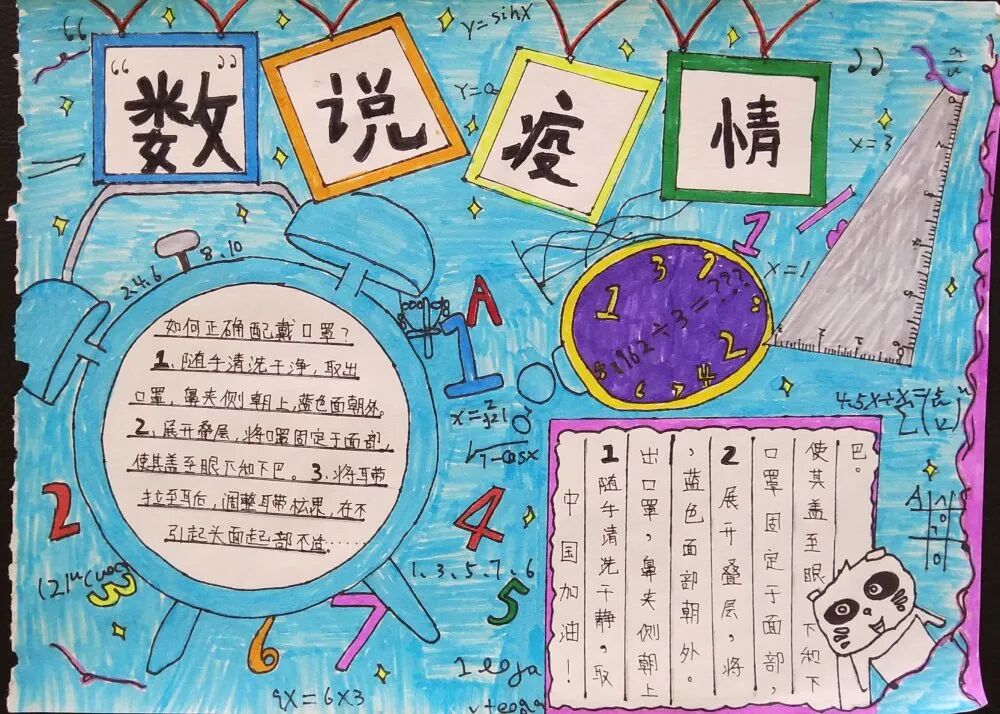 “数”
说
疫
情
y=sinx
y=a
x=3
x=1
2.4.6
8.10
如何正确配戴口罩？
1、随手清洗干净，取出
口罩，鼻夹侧朝上，蓝色面朝外。
2、展开叠层，将口罩固定于面部，
使其盖至眼下和下巴。3、将耳带
拉至耳后，调整耳带松累，在不
引起头面起部不适……
A
1
3
7
1
1
8962÷3=???
2
4
4.5x÷x=
2
4
5
1、3、5、7、6
3
6
7
9x=6x3
中国加油！
1 随手清洗干静，取
出口罩，鼻夹侧朝上
，蓝色面部朝外。
2 展开叠层，将
口罩固定于面部，
使其盖至眼下和下
巴。